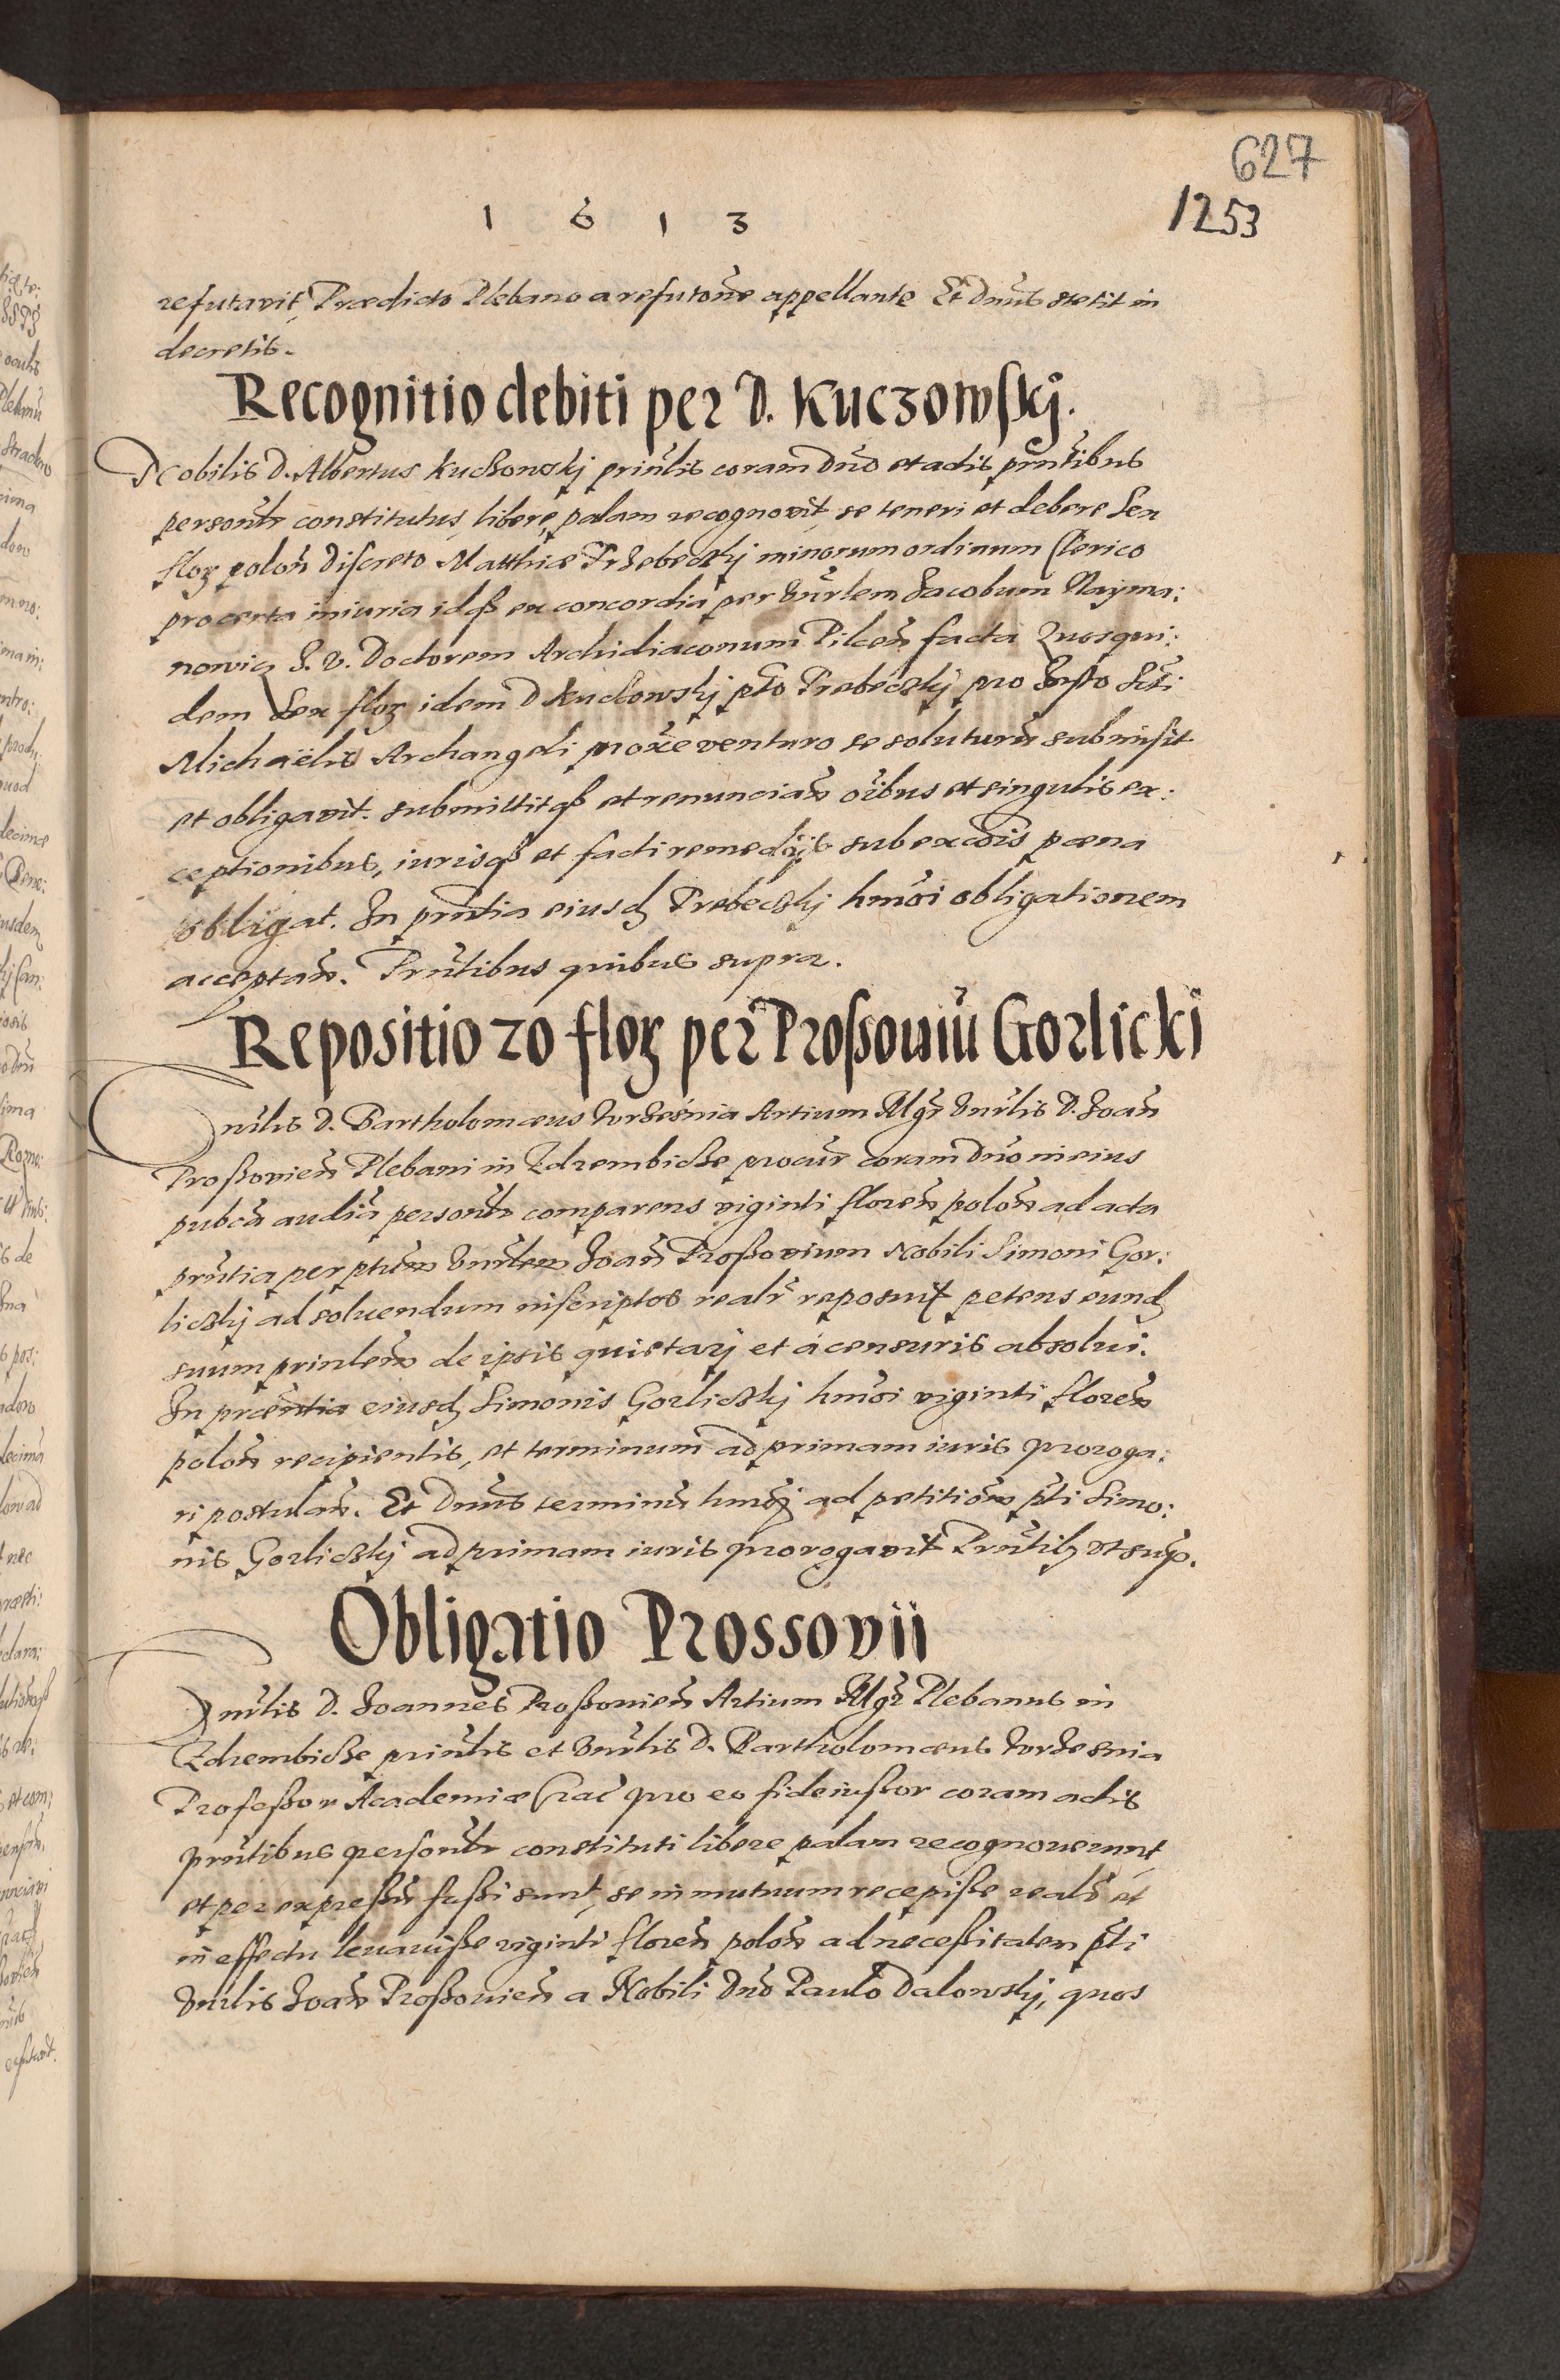 627
1253
1 6 1 3
refutavit, Prædicto Plebano a refutone appellante Et Dnus stetit in
decretis.
Recognitio debiti per D. Kuczowskj.
Nobilis D. Albertus Kuczowskj prinlis coram Dno et actis pntibus
personlr constitutus, libere, palam recognovit, se teneri et debere Sex
flor polon Discreto Matthiæ Przebeczkj minorum ordinum Clerico
pro certa iniuria idqz ex concordia per Vnrlem Jacobum Nayma:
nowicz J. V. Doctorem Archidiaconum Pilcen facta Quosqui:
dem Sex flor idem D Kuczowskj pto Przebeczkj pro Festo Scti
Michaëlis Archangeli proxe venturo se soluturu submisit
et obligavit. submittitqz et renuncian oibus et singulis ex:
ceptionibus, iurisqz et facti remedijs sub excois pæna
obligat. In pntia eiusd Przebeczkj hmoi obligationem
acceptan. Pntibus quibus supra.
Repositio 20 flor per Proßouiu Gorlicki
Vnrlis D. Bartholomæus Wrzesnia Artium Mgr Vnrlis D. Joan
Proßovien Plebani in Zdrembicze procur coram Dno in eius
pubca audia personlr comparens viginti floren polon ad acta
pntia per ptum Vnrlem Joan Proßovium Nobili Simoni Gor:
liczkj ad soluendum inscriptos realr reposuit petens eund
suum prinlem de ipsis quietarj et a censuris absolui.
In præntia eiusd Simonis Gorliczkj hmoi viginti floren
polon recipientis, et terminum ad primam iuris proroga:
ri postulan. Et Dnus terminu hmoj ad petitiom pti Simo:
nis Gorliczkj ad primam iuris prorogavit Pntib vt sup.
Obligatio Prossovii
Vnrlis D. Joannes Proßovien Artium Mgr Plebanus in
Zdrembicze prinlis et Vnrlis D. Bartholomæus Wrzesnia
Profeßor Academiæ Crac pro eo fideiußor coram actis
pntibus personlr constituti libere palam recognouerunt
et per expreßu faßi sunt, se in mutuum recepiße realr et
in effectu leuauiße viginti floren polon ad neceßitatem pti
Vnrlis Joan Proßovien a Nobili Dno Paulo Dalowskj, quos